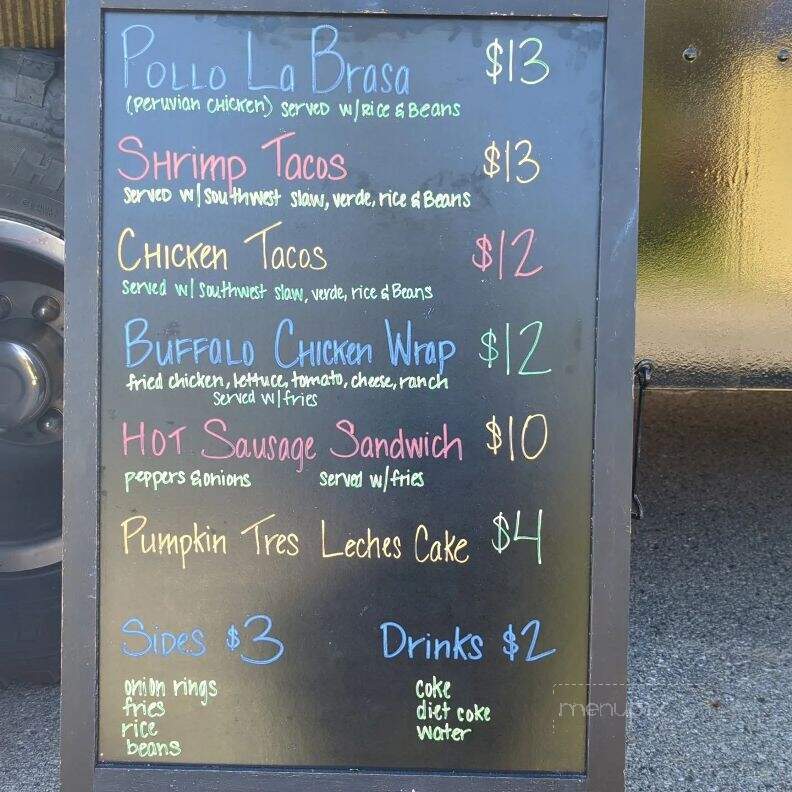 Pollo La Brasa $13
(Peruvian Chicken) served w/Rice & Beans
Shrimp Tacos $13
served w/ southwest slaw, verde, rice & Beans
Chicken Tacos $12
served w/ southwest slaw, verde, rice & Beans
Buffalo Chicken Wrap $12
fried chicken, lettuce, tomato, cheese, ranch
served w/fries
Hot Sausage Sandwich $10
peppers & onions served w/fries
Pumpkin Tres Leches Cake $4
Sides $3 Drinks $2
onion rings coke
fries diet coke
rice water
beans
menupix